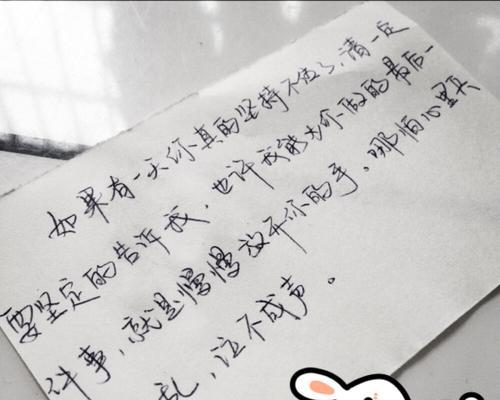 如果有一天你真的坚持不住了,请一定
要坚定的告诉我,也许我能为你做的最后一
件事,就是慢慢放开你的手。哪怕心里
乱,泣不成声。